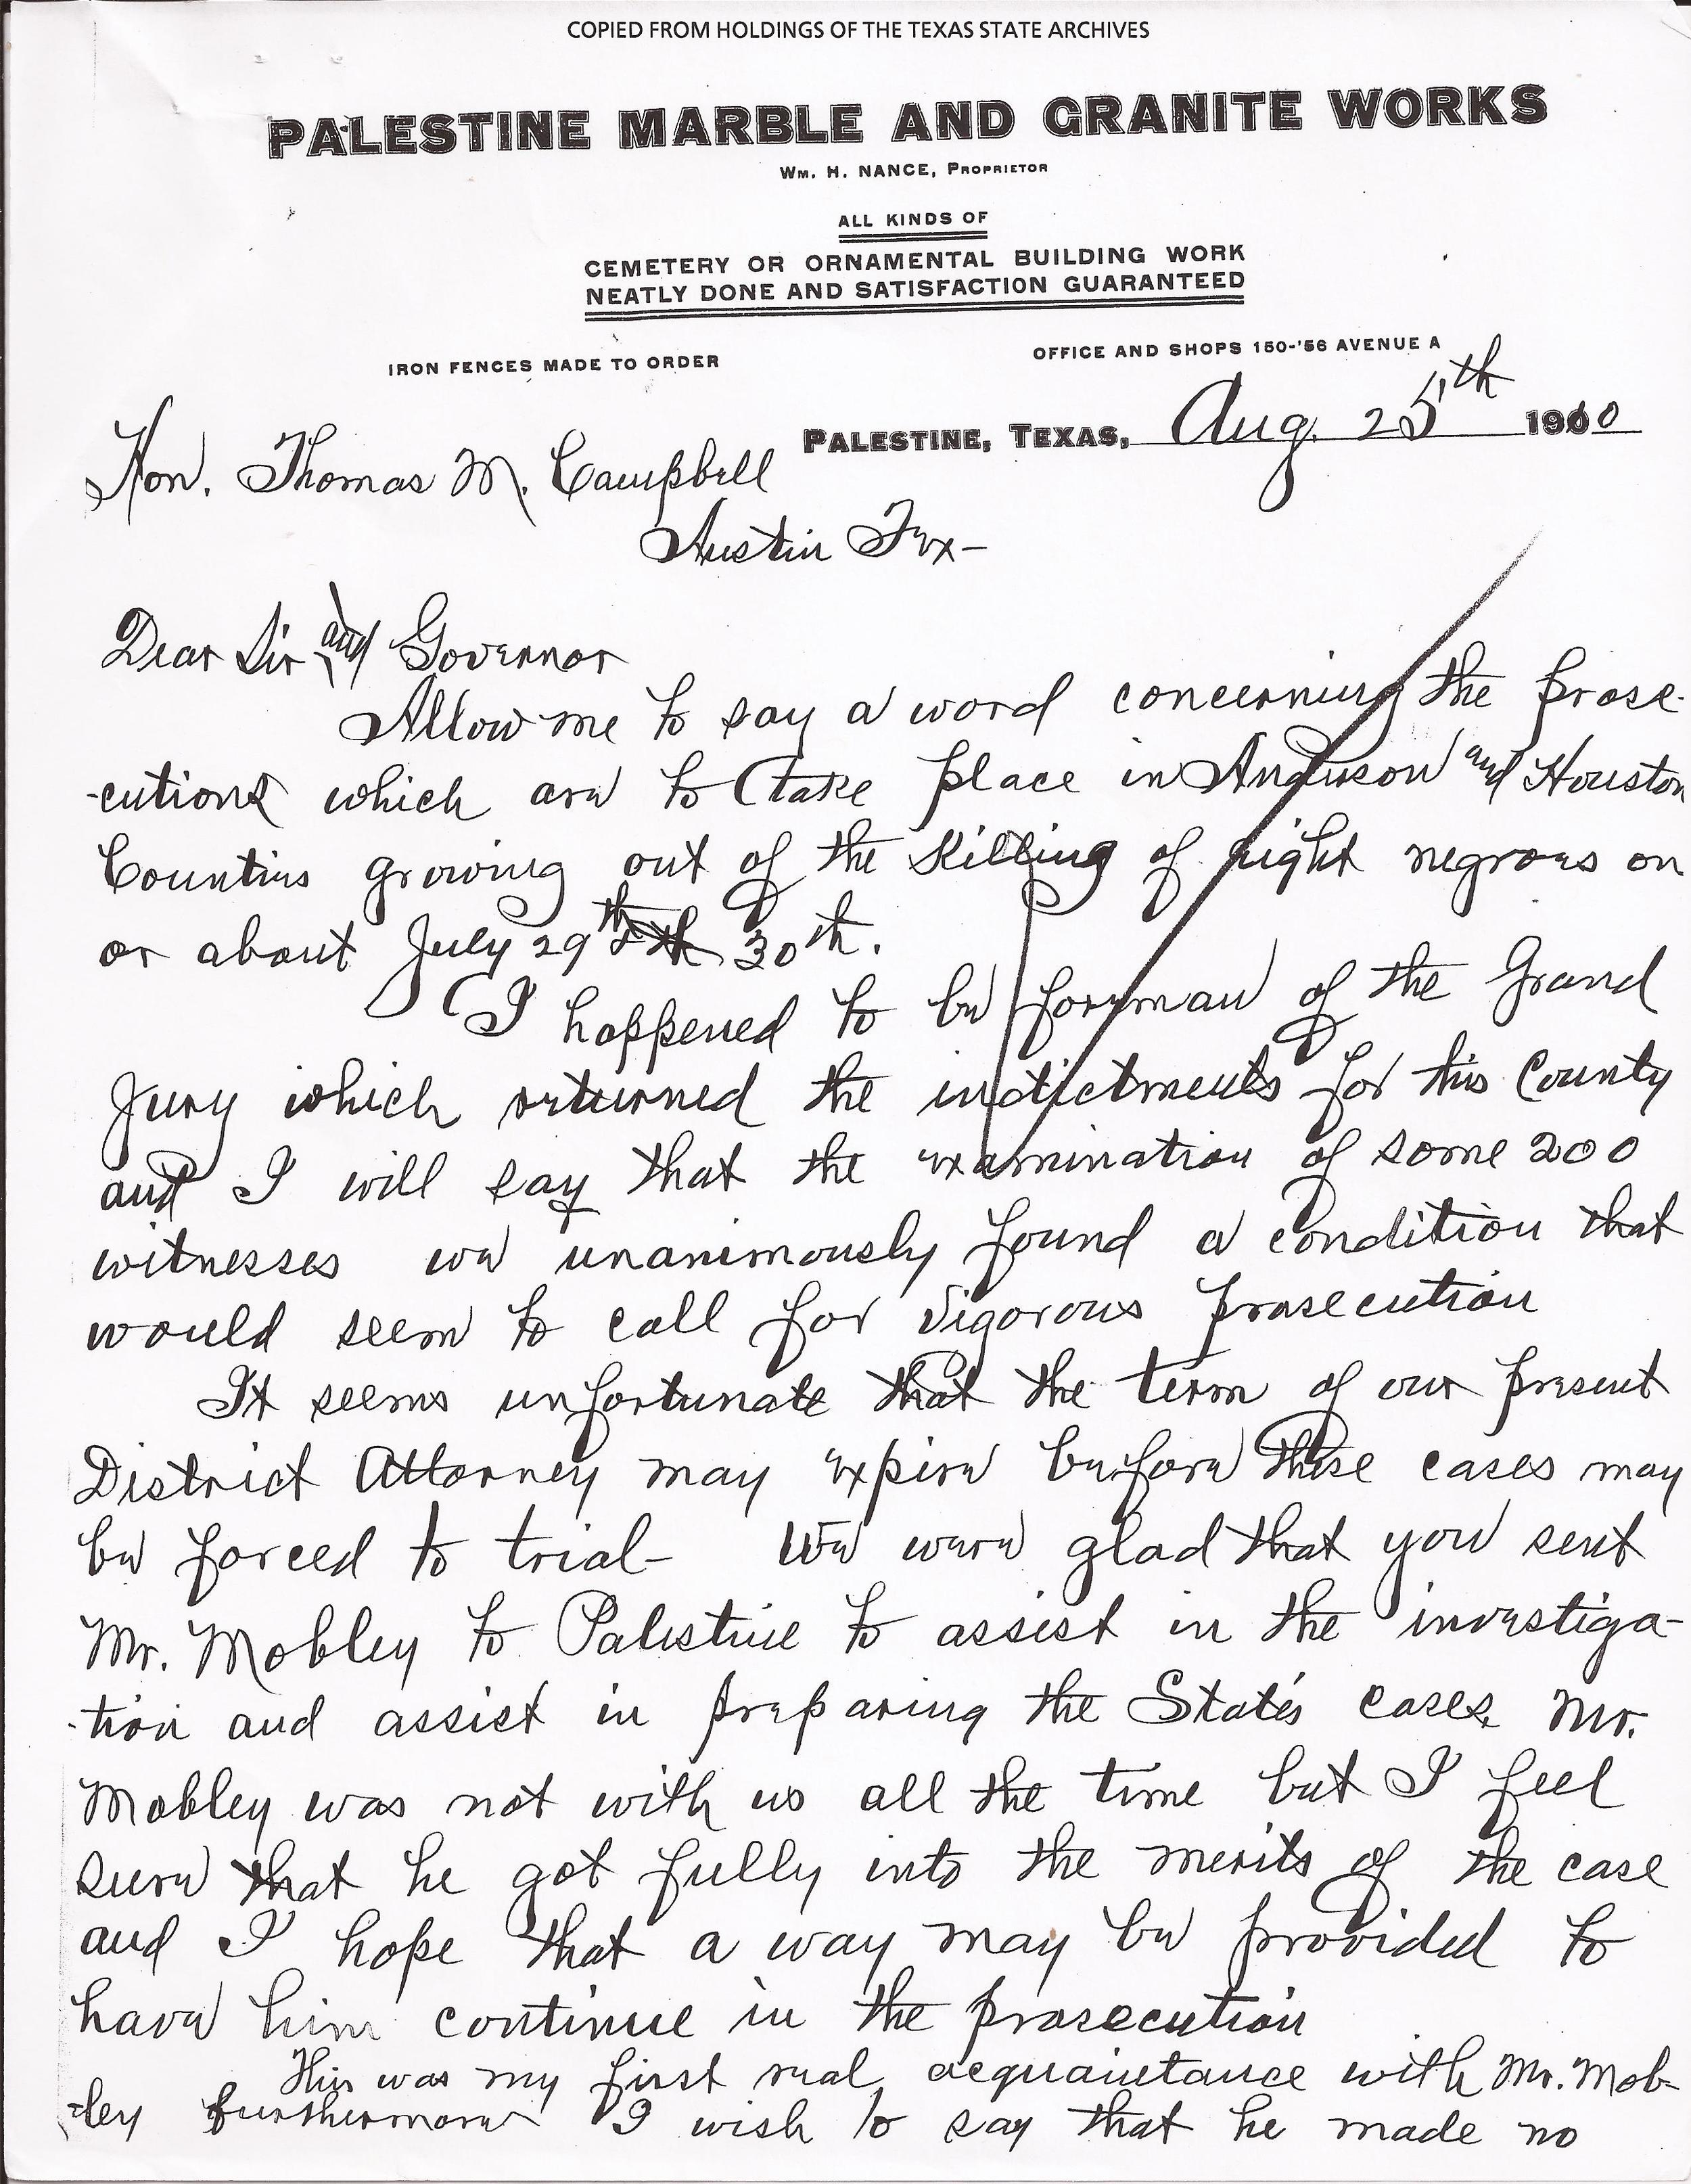 COPIED FROM HOLDINGS OF THE TEXAS STATE ARCHIVES
PALESTINE MARBLE AND GRANITE WORKS
WM. H. NANCE, PROPRIETOR
ALL KINDS OF
CEMETERY OR ORNAMENTAL BUILDING WORK
NEATLY DONE AND SATISFACTION GUARANTEED
IRON FENCES MADE TO ORDER
OFFICE AND SHOPS 150-'56 AVENUE A
PALESTINE, TEXAS, Aug. 25th 1910
Hon. Thomas M. Campbell
Austin Tex-
Dear Sir and Governor
Allow me to say a word concerning the prose-
-cutions which are to take place in Anderson and Houston
Counties growing out of the killing of eight negroes on
or about July 29th 30th.
I happened to be foreman of the Grand
Jury which returned the indictments for this County
and I will say that the examination of some 200
witnesses we unanimously found a condition that
would seem to call for vigorous prosecution
It seems unfortunate that the term of our present
District Attorney may expire before these cases may
be forced to trial- We were glad that you sent
Mr. Mobley to Palestine to assist in the investiga-
-tion and assist in preparing the State's cases. Mr.
Mobley was not with us all the time but I feel
sure that he got fully into the merits of the case
and I hope that a way may be provided to
have him continue in the prosecution
This was my first real acquaintance with Mr. Mob-
-ley furthermore I wish to say that he made no